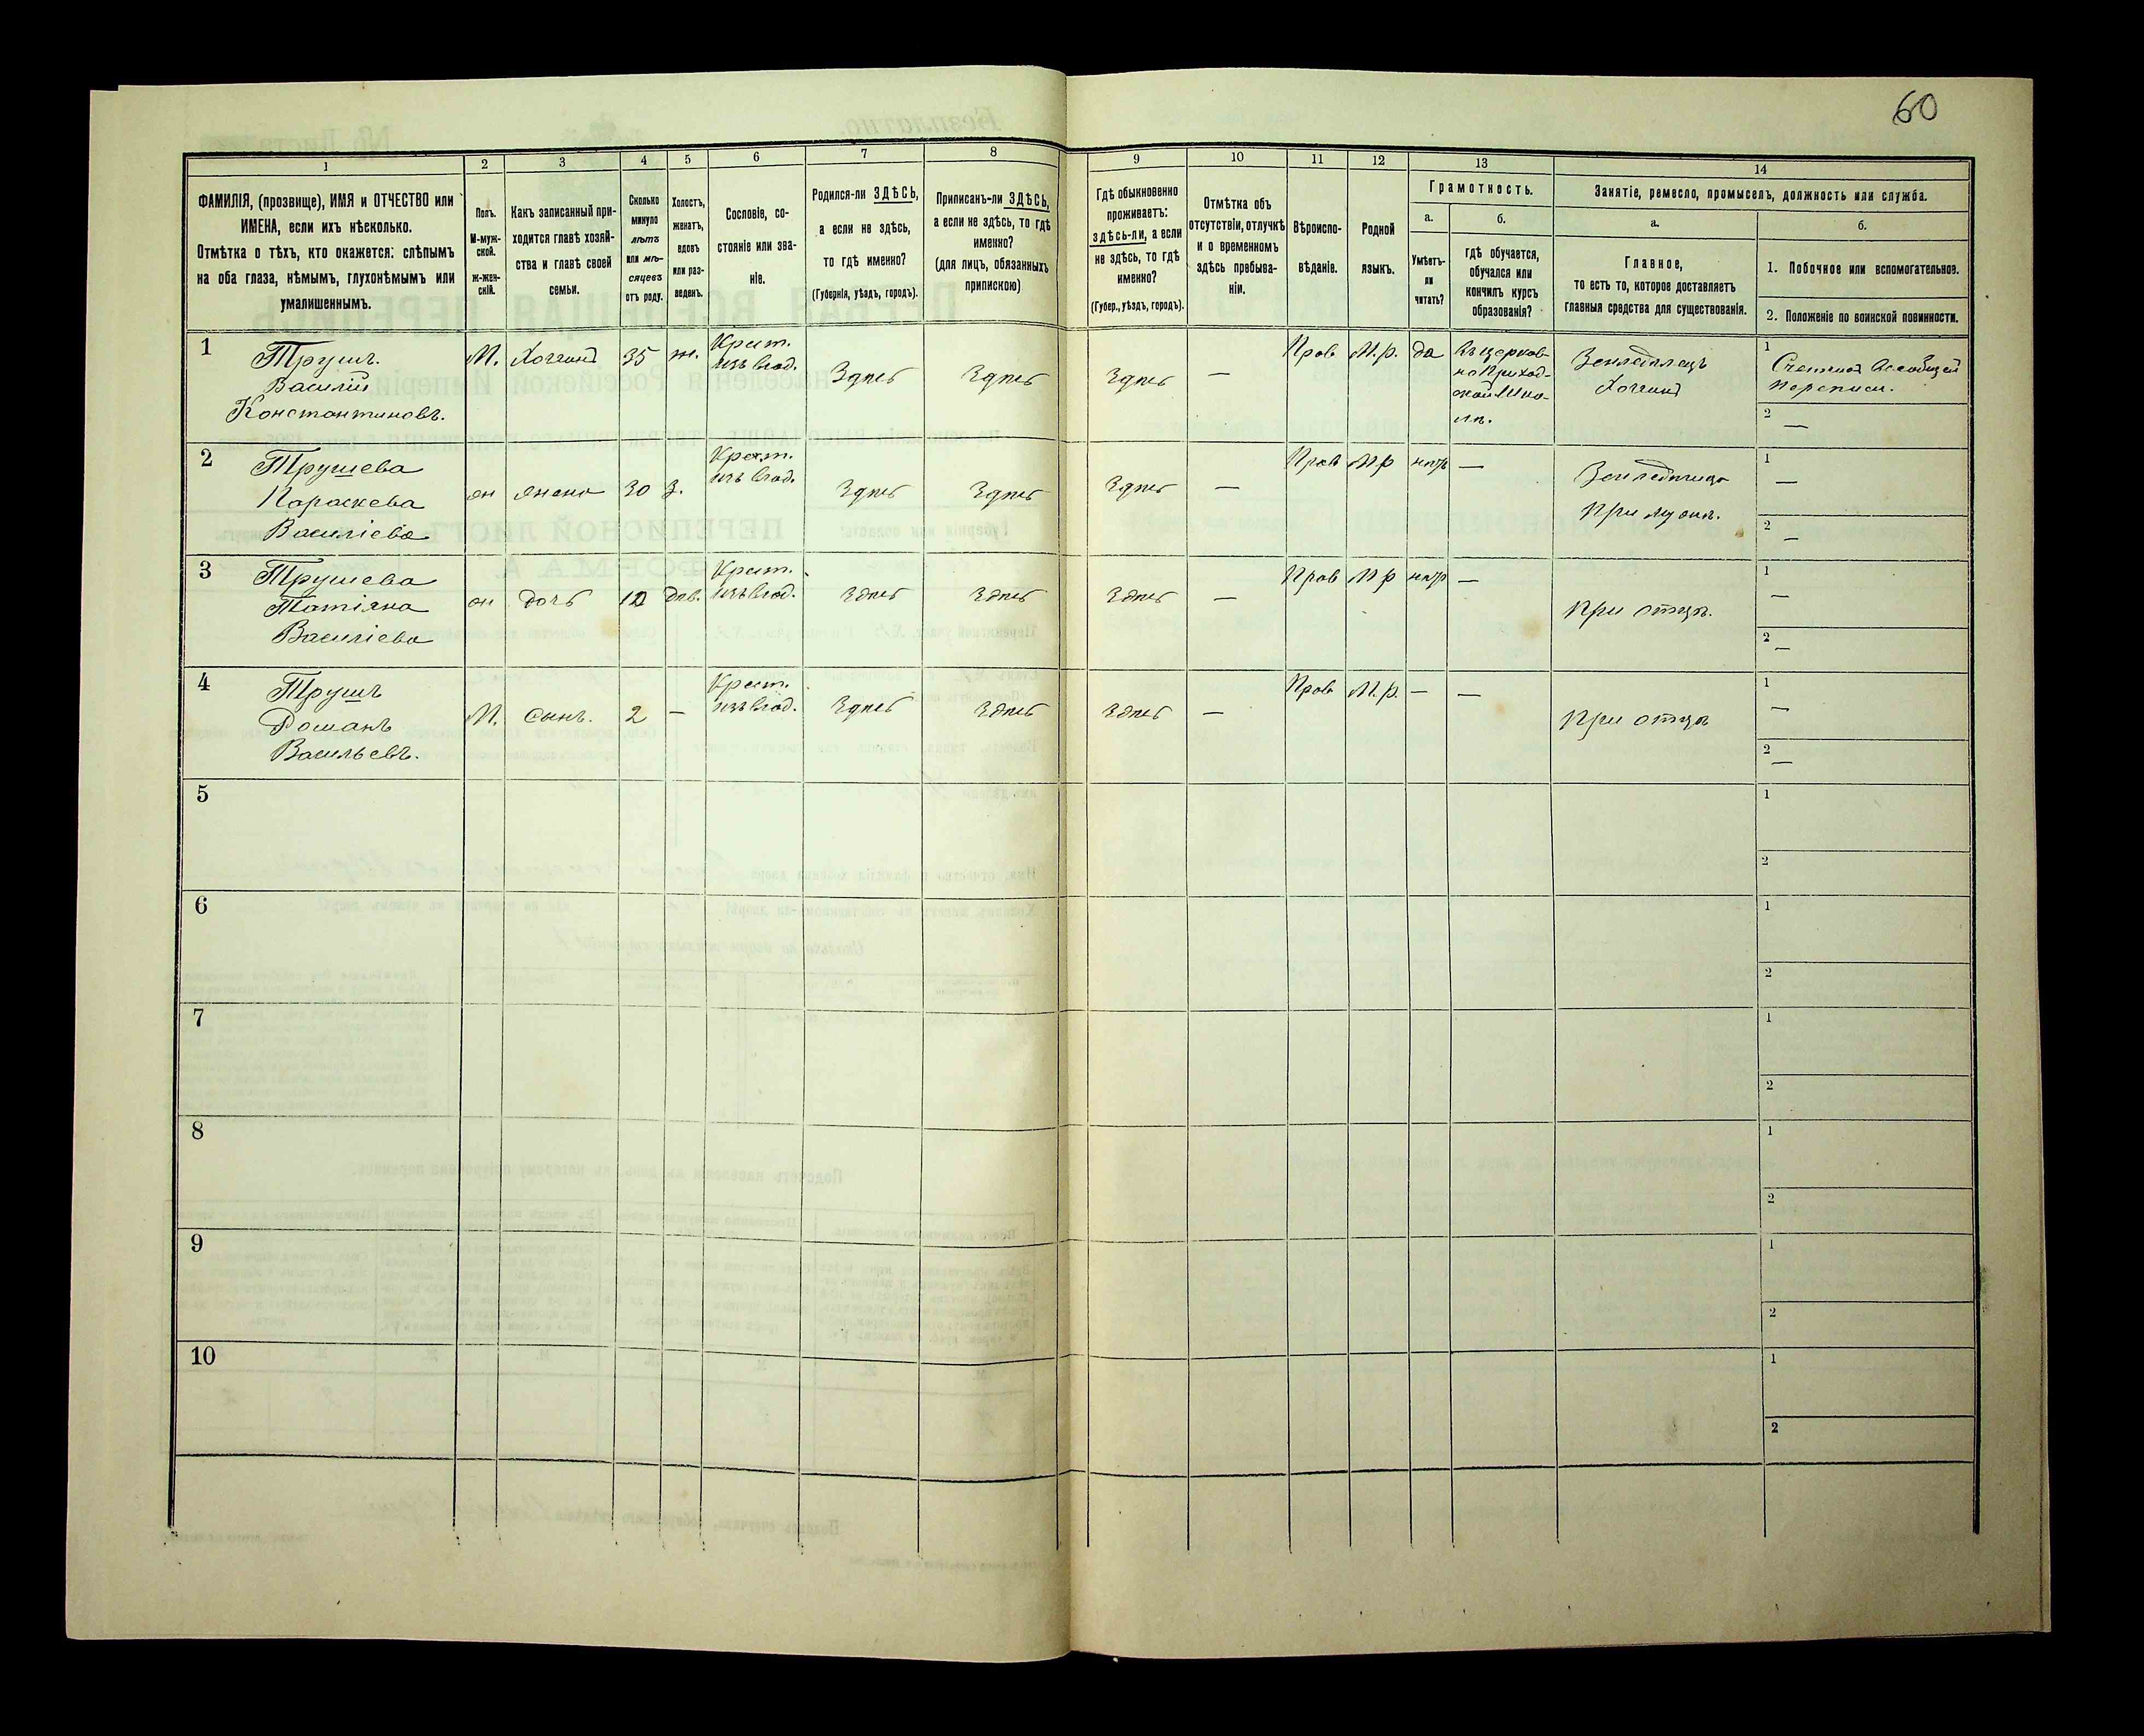 60
1
2
3
4
5
6
7
8
9
10
11
12
13
14
ФАМИЛІЯ, (прозвище), ИМЯ и ОТЧЕСТВО или
ИМЕНА, если ихъ нѣсколько.
Отмѣтка о тѣхъ, кто окажется: слѣпымъ
на оба глаза, нѣмымъ, глухонѣмымъ или
умалишеннымъ.
Полъ.
М-муж-
ской.
ж-жен-
скій.
Какъ записанный при-
ходится главѣ хозяй-
ства и главѣ своей
семьи.
Сколько
минуло
лѣтъ
или мѣ-
сяцевъ
отъ роду.
Холостъ,
женатъ,
вдовъ
или раз-
веденъ.
Сословіе, со-
стояніе или зва-
ніе.
Родился-ли ЗДѢСЬ,
а если не здѣсь,
то гдѣ именно?
(Губернія, уѣздъ, городъ).
Приписанъ-ли ЗДѢСЬ,
а если не здѣсь, то гдѣ
именно?
(для лицъ, обязанныхъ
припискою)
Гдѣ обыкновенно
проживаетъ:
здѣсь-ли, а если
не здѣсь, то гдѣ
именно?
(Губер., уѣздъ, городъ).
Отмѣтка объ
отсутствіи, отлучкѣ
и о временномъ
здѣсь пребыва-
ніи.
Вѣроиспо-
вѣданіе.
Родной
языкъ.
Грамотность.
а.
Умѣетъ-
ли
читать?
б.
гдѣ обучается,
обучался или
кончилъ курсъ
образованія?
Занятіе, ремесло, промыселъ, должность или служба.
а.
Главное,
то есть то, которое доставляетъ
главныя средства для существованія.
б.
1. Побочное или вспомогательное.
2. Положеніе по воинской повинности.
1
Трушъ.
Василій
Константиновъ.
М.
Хозяинъ
35
ж.
Крест.
изъ влад.
Здѣсь
Здѣсь
Здѣсь
—
Прав
М.р.
да
Въ церков-
но Приход-
ской Шко-
лѣ.
Земледѣлецъ
Хозяинъ
1
Счетчикъ Всеобщей
Переписи.
2
—
2
Трушева
Параскева
Василіева
ж
жена
30
З.
Крест.
изъ влад.
Здѣсь
Здѣсь
Здѣсь
—
Прав
М р
нѣтъ
—
при мужѣ.
1
—
2
—
3
Трушева
Татіяна
Василіева
ж
дочь
дѣв.
Крест.
изъ влад.
Здѣсь
Здѣсь
Здѣсь
—
Прав
М р
нѣтъ
—
при отцѣ.
1
—
2
—
4
Трушъ
Романъ
Васильевъ.
М.
сынъ.
2
—
Крест.
изъ влад.
Здѣсь
Здѣсь
Здѣсь
—
Прав
М.р.
—
—
при отцѣ
1
—
2
—
5
1
2
6
1
2
7
1
2
8
1
2
9
1
2
10
1
2